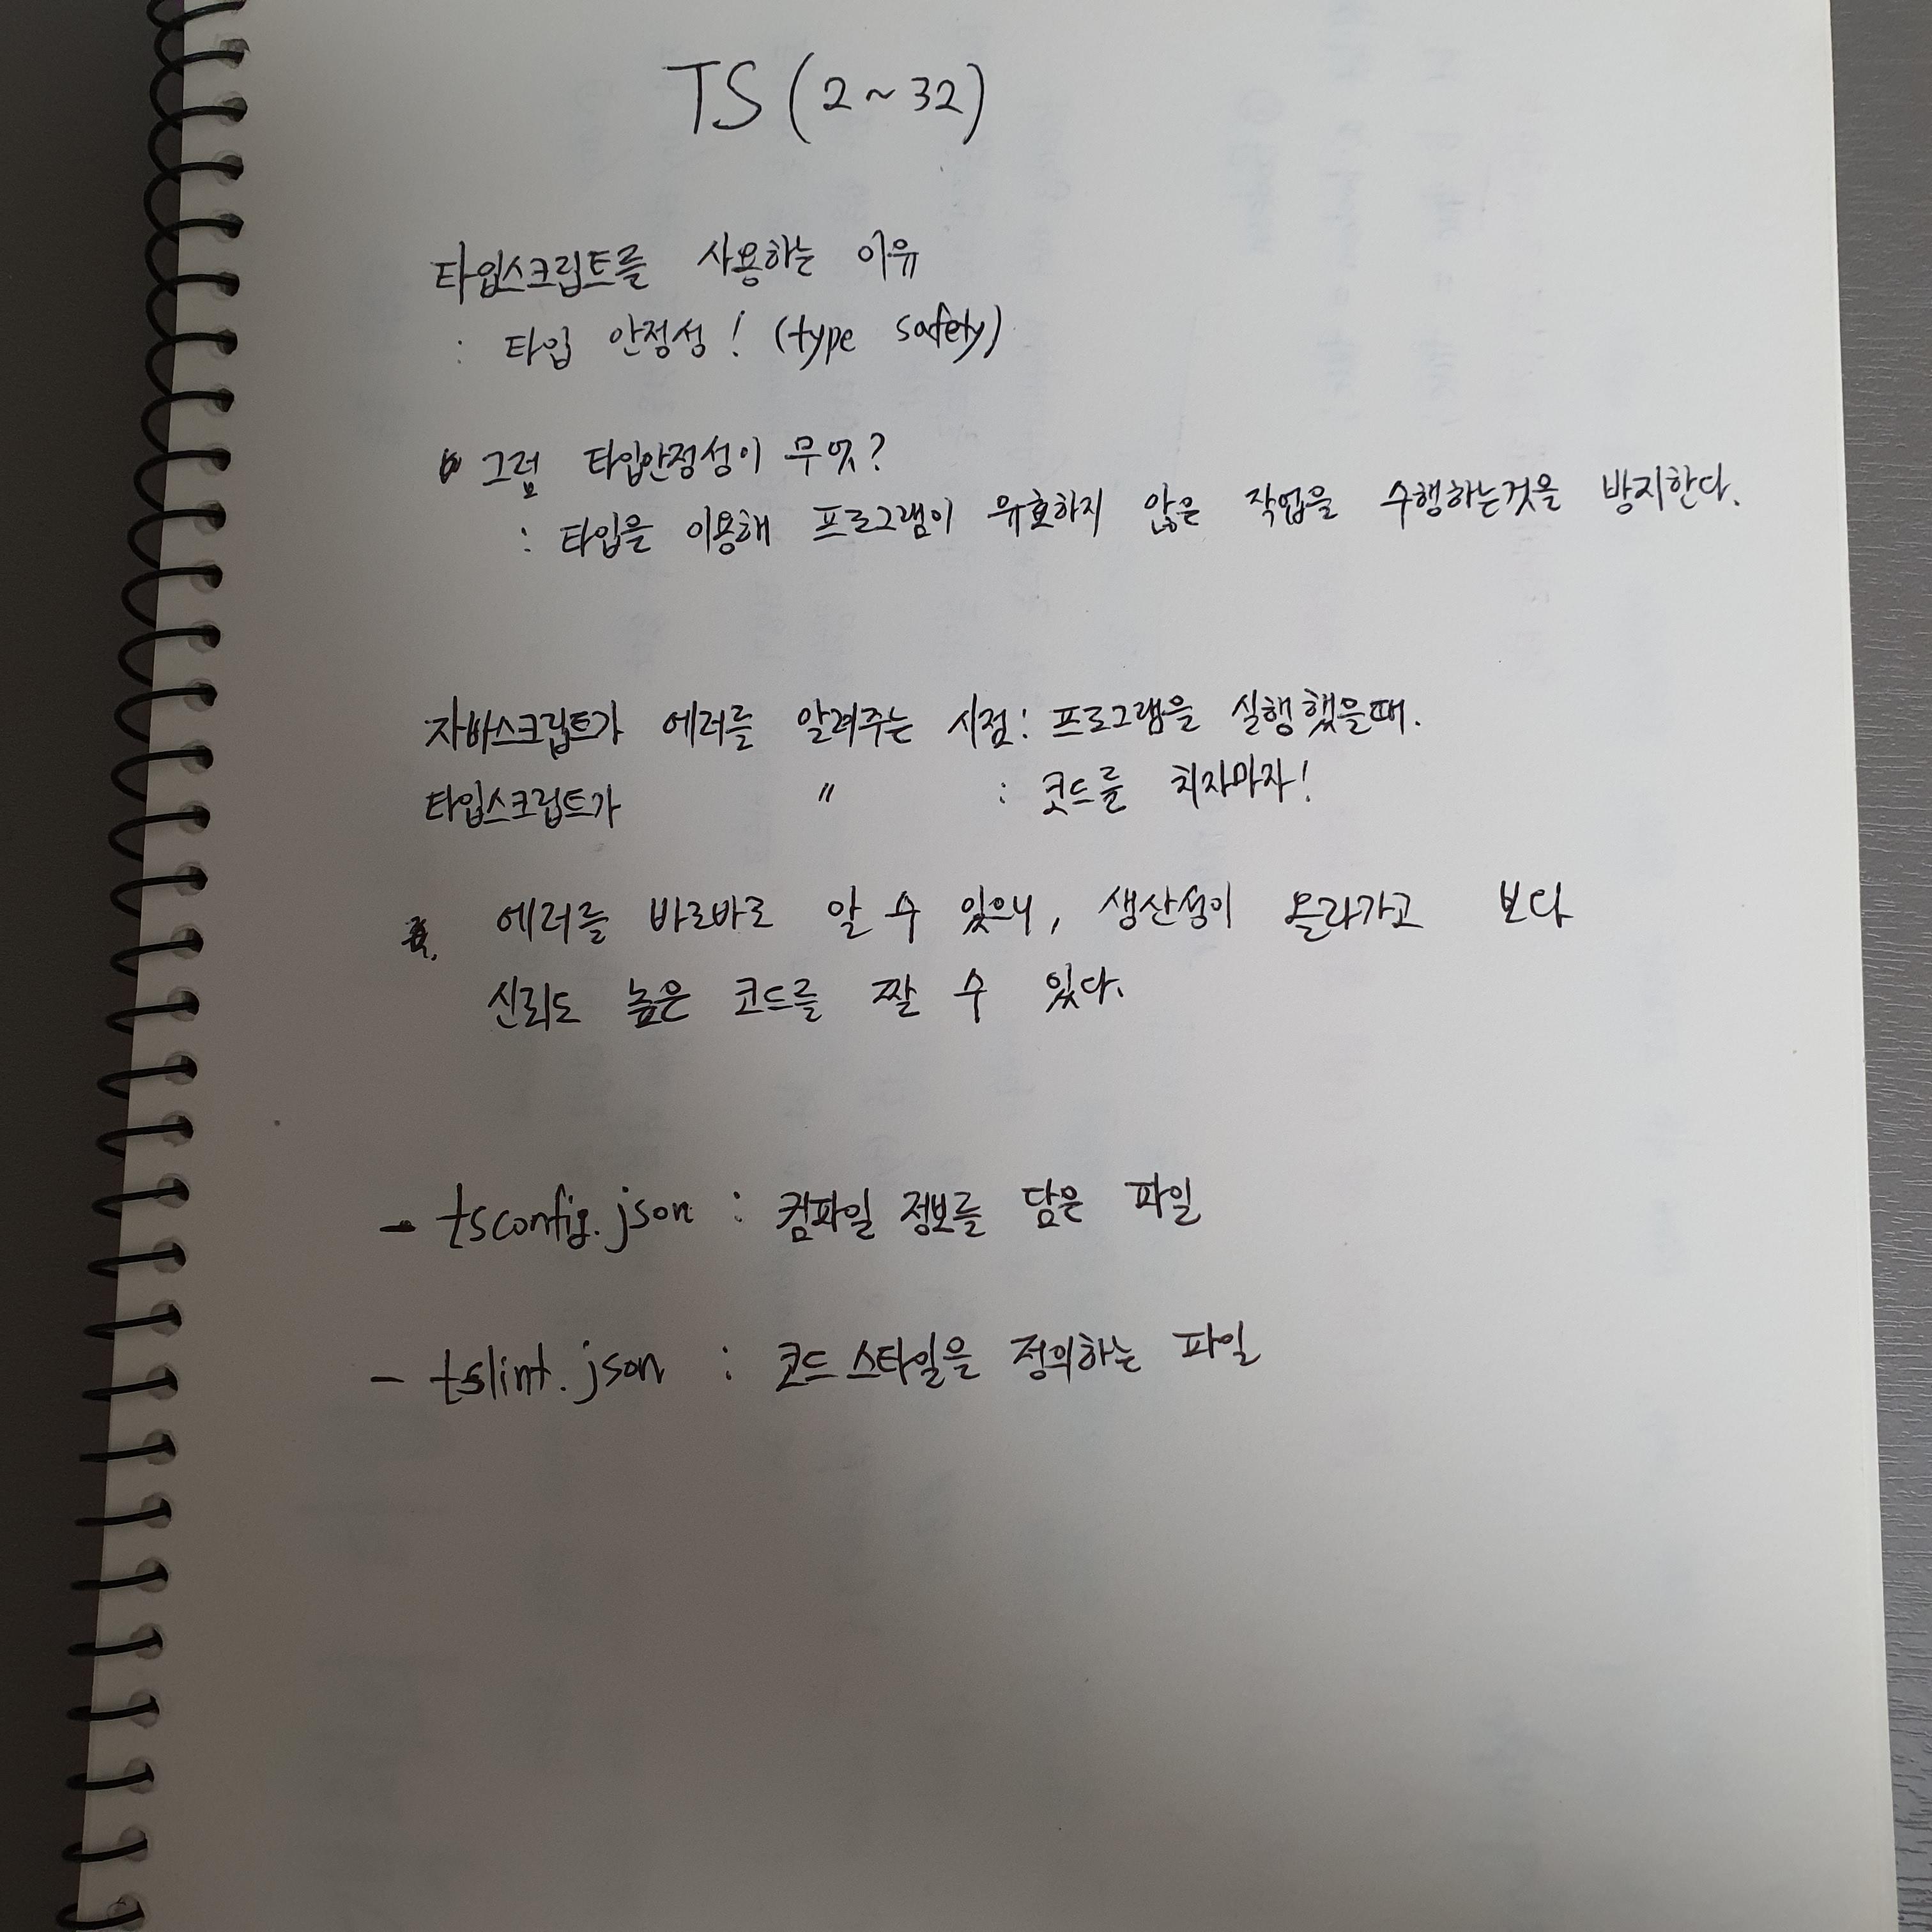 TS (2~32)
타입스크립트를 사용하는 이유
: 타입 안정성! (type safety)
그럼 타입안정성이 무엇?
: 타입을 이용해 프로그램이 유효하지 않은 작업을 수행하는것을 방지한다.
자바스크립트가 에러를 알려주는 시점: 프로그램을 실행했을때.
타입스크립트가 〃 : 코드를 치자마자!
에러를 바로바로 알 수 있으니, 생산성이 올라가고 보다
신뢰도 높은 코드를 짤 수 있다.
- tsconfig.json : 컴파일 정보를 담은 파일
- tslint.json : 코드 스타일을 정의하는 파일